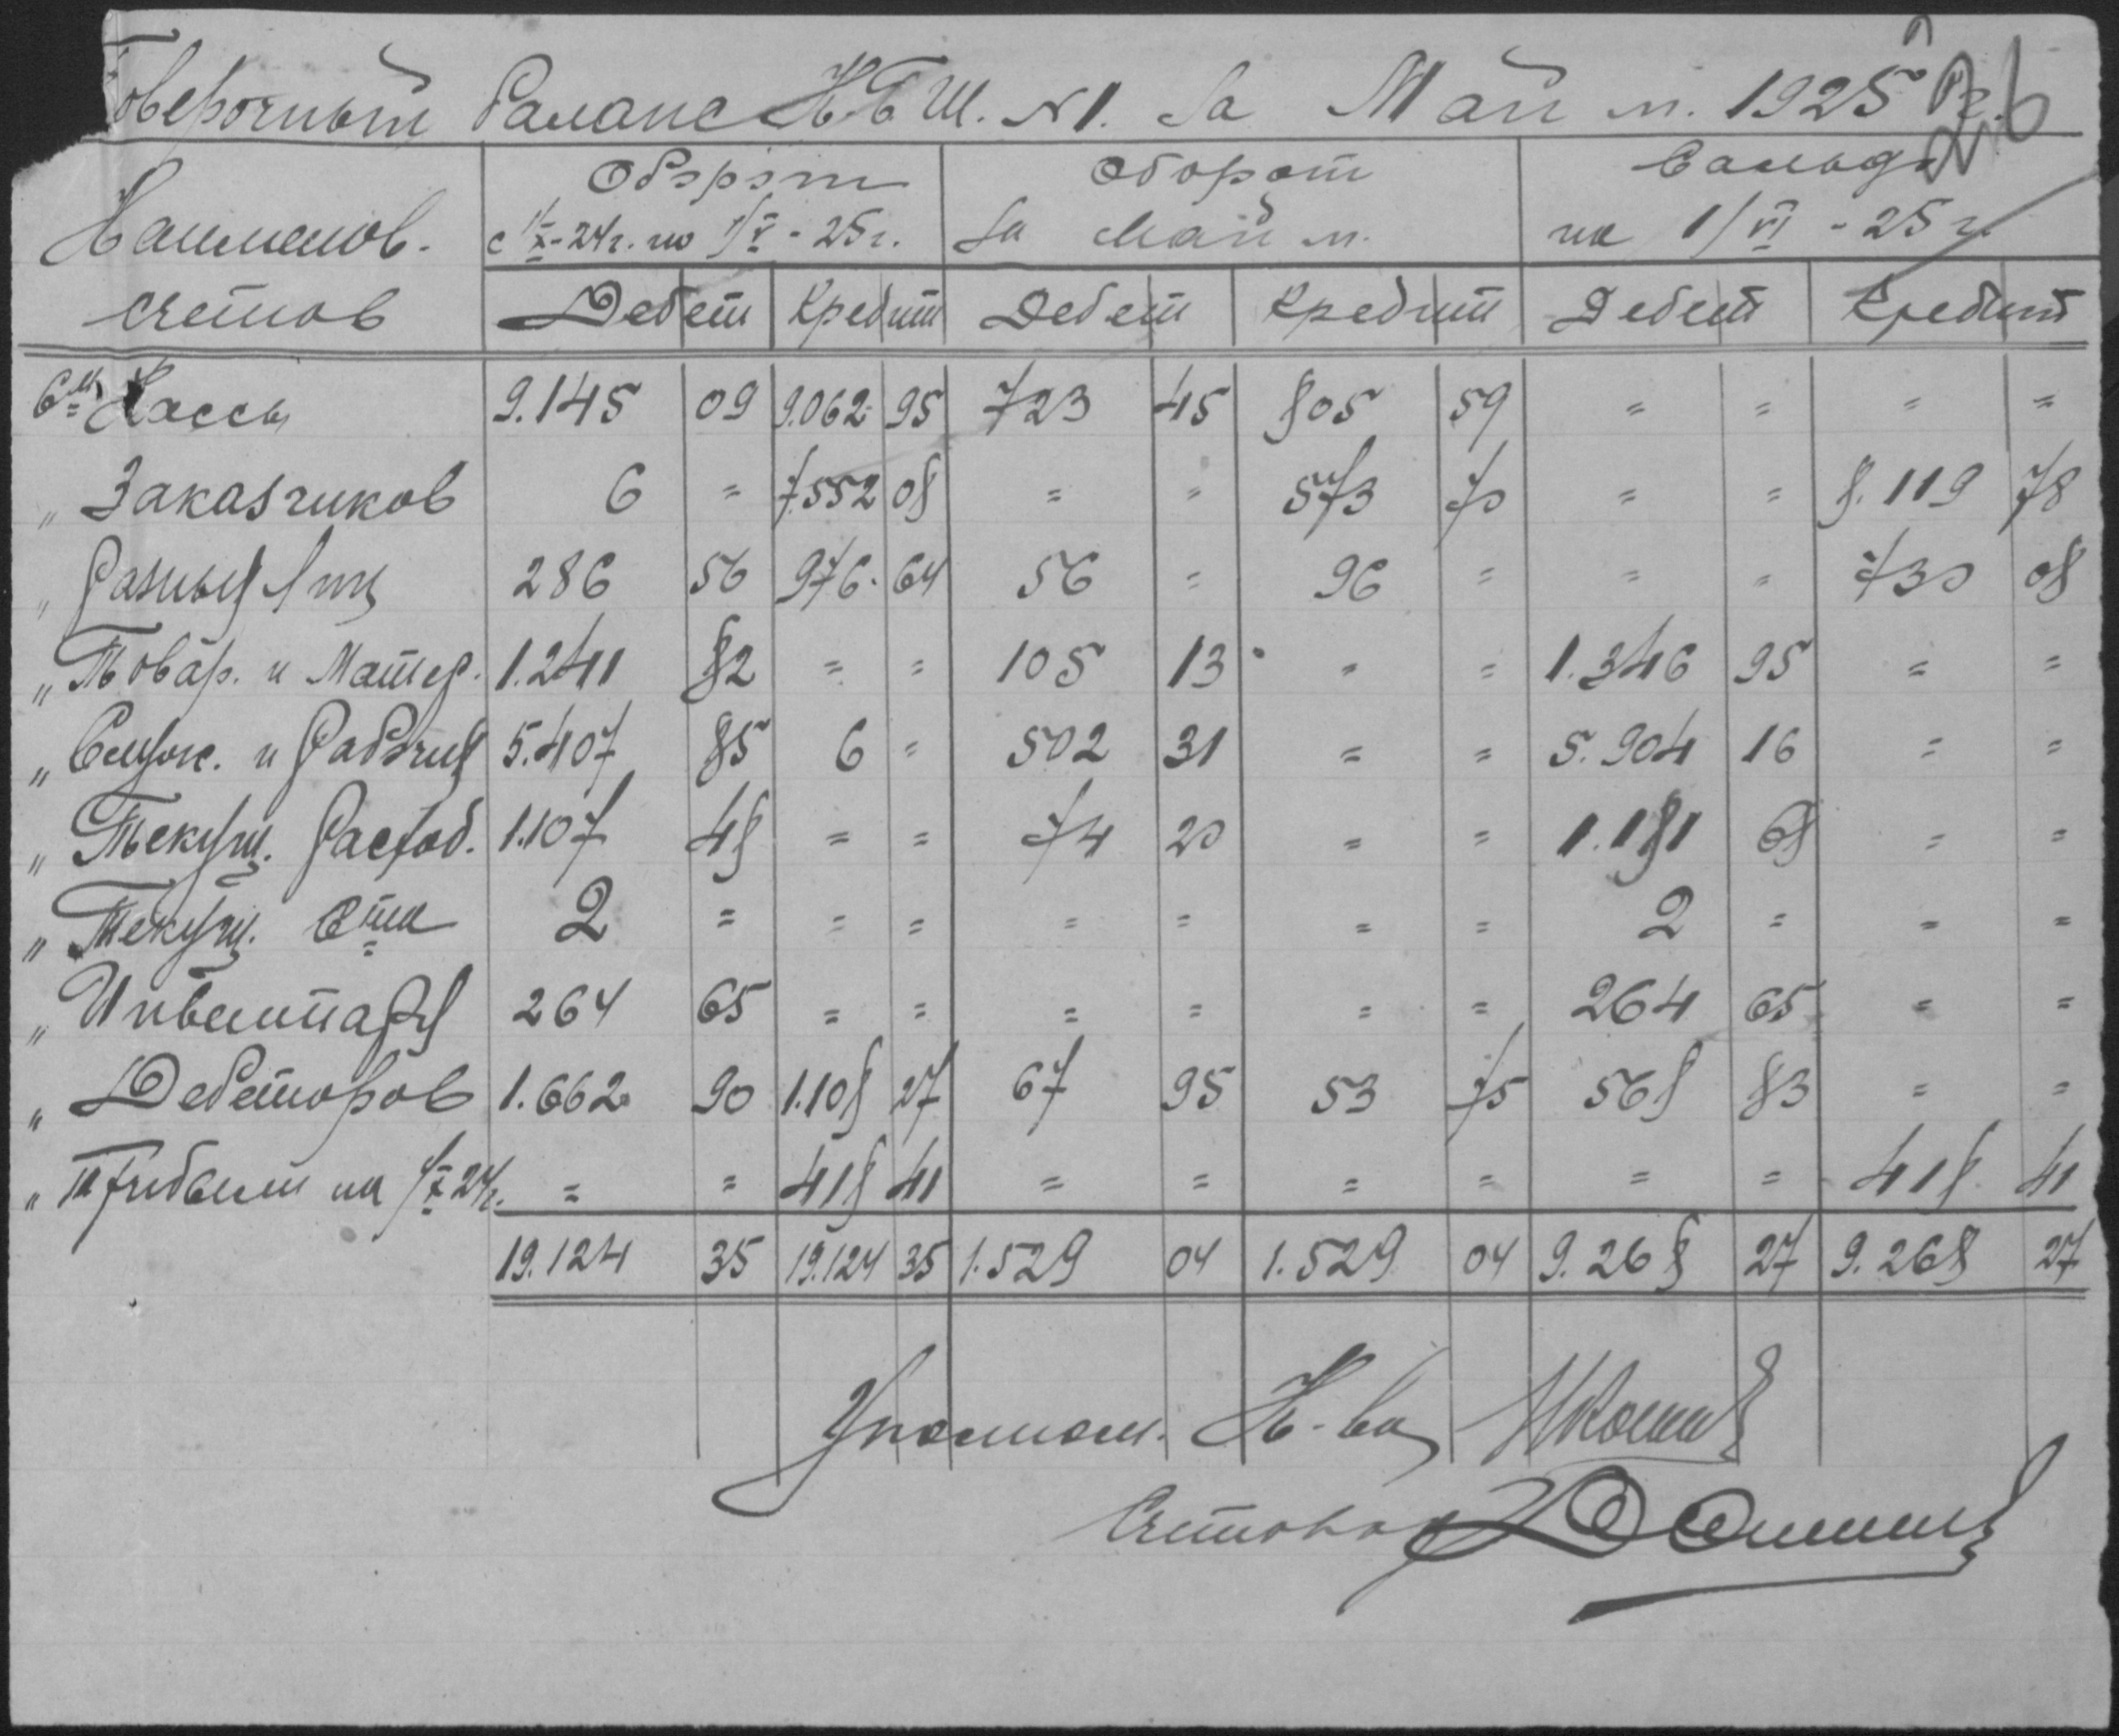 Поверочный баланс Н.Б Ш. N1. За Май м. 1925 г.
26
Наименов. счетов
Оборот с 1/X-24г. по 1/V-25г.
Оборот за Май м.
Сальдо на 1/VI-25 г.
Дебет Кредит Дебет Кредит Дебет Кредит
Сч. Кассы 9.145 09 9.062 95 723 45 805 59 = = = =
„ Заказчиков 6 = 7.552 08 = = 573 70 = = 8.119 78
„ Разных лиц 286 56 976. 64 56 = 96 = = = 730 08
„ Товар. и Матер. 1.241 82 = = 105 13 = = 1.346 95 = =
„ Служ. и Рабочих 5.407 85 6 = 502 31 = = 5.904 16 = =
„ Текущ. Расход. 1.107 48 = = 74 20 = = 1.181 68 = =
„ Текущ. Счта 2 = = = = = = = 2 = = =
„ Инвентаря 264 65 = = = = = = 264 65 = =
„ Дебеторов 1.662 90 1.108 27 67 95 53 75 568 83 = =
„ Прибыли на 1/X 24г. = = 418 41 = = = = = = 418 41
19.124 35 19.124 35 1.529 04 1.529 04 9.268 27 9.268 27
Уполном. К-ва
Счетовод